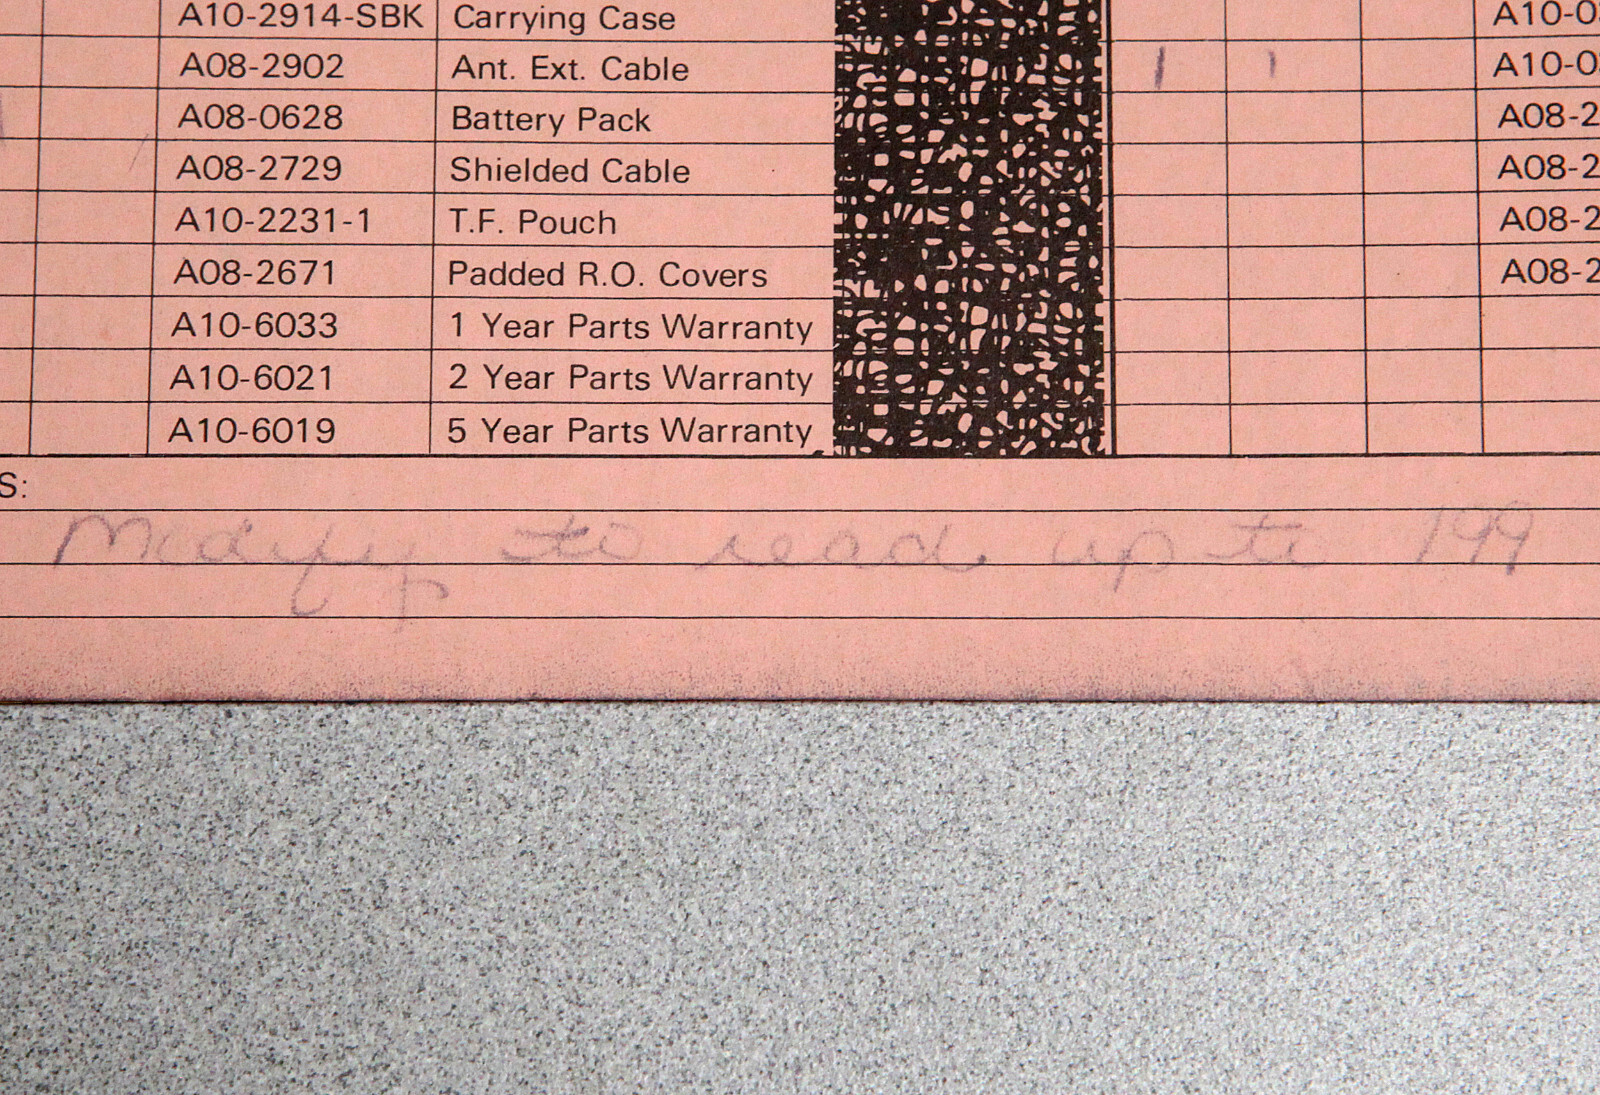 A10-2914-SBK Carrying Case A10-0
A08-2902 Ant. Ext. Cable 1 1 A10-0
A08-0628 Battery Pack A08-2
A08-2729 Shielded Cable A08-2
A10-2231-1 T.F. Pouch A08-2
A08-2671 Padded R.O. Covers A08-2
A10-6033 1 Year Parts Warranty
A10-6021 2 Year Parts Warranty
A10-6019 5 Year Parts Warranty
S:
Modify to read up to 199